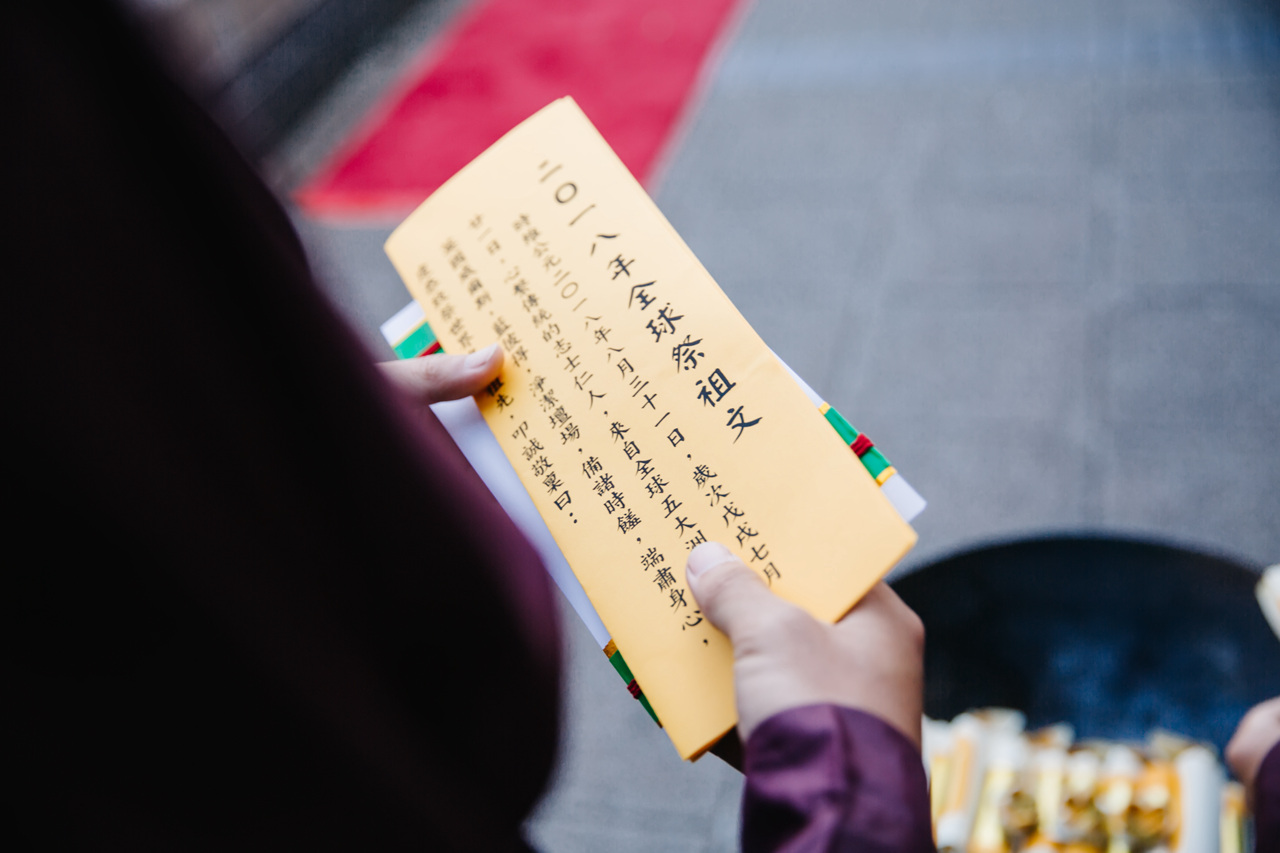 二〇一八年全球祭祖文
時維公元二〇一八年八月三十一日，歲次戊戌七月
廿一日，心繫傳統的志士仁人，來自全球五大洲
英國威爾斯，淨潔壇場，備諸時饈，端肅身心，
祖先，叩誠敬稟曰：